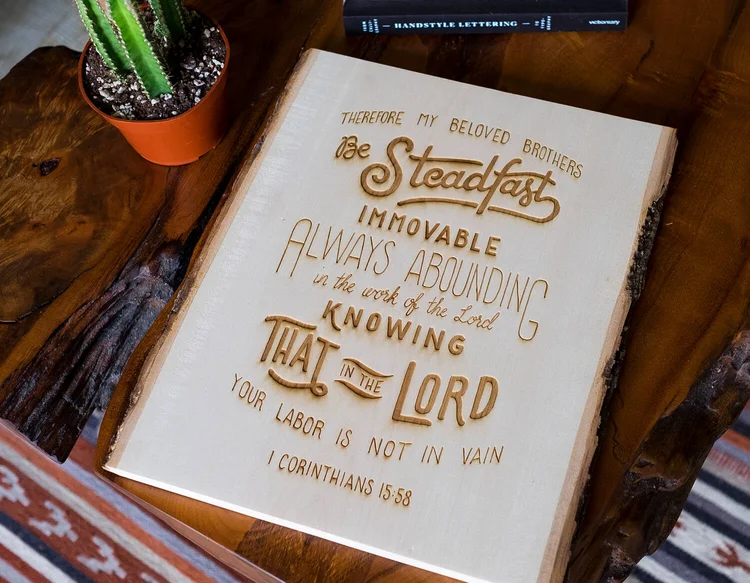 HANDSTYLE LETTERING
victionary
THEREFORE MY BELOVED BROTHERS
Be Steadfast
IMMOVABLE
ALWAYS ABOUNDING
in the work of the Lord
KNOWING
THAT IN THE LORD
YOUR LABOR IS NOT IN VAIN
1 CORINTHIANS 15:58